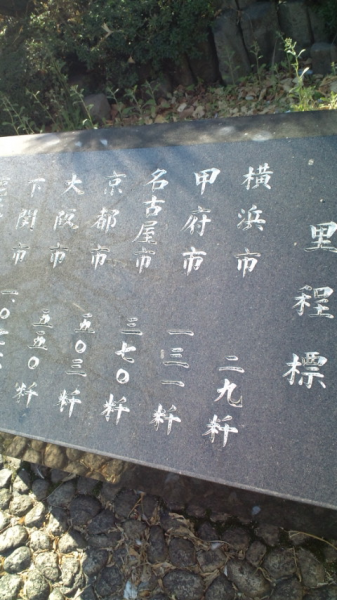 里程標
横浜市 二九粁
甲府市 一三一粁
名古屋市 三七〇粁
京都市 五〇三粁
大阪市 五五〇粁
下関市 一、〇七